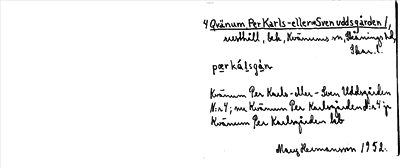 4 Qvänum Per Karls- eller Sven uddsgården /,
lek, Kvänums sn, Skånings hd,
Skar. l.
pærkálsgán
Kvänum Per Karls- eller Sven Uddsgården
N:r 4; nu Kvänum Per Karlsgården N:r 4 jr
Kvänum Per Karlsgården
Mary Hermansson 1952.